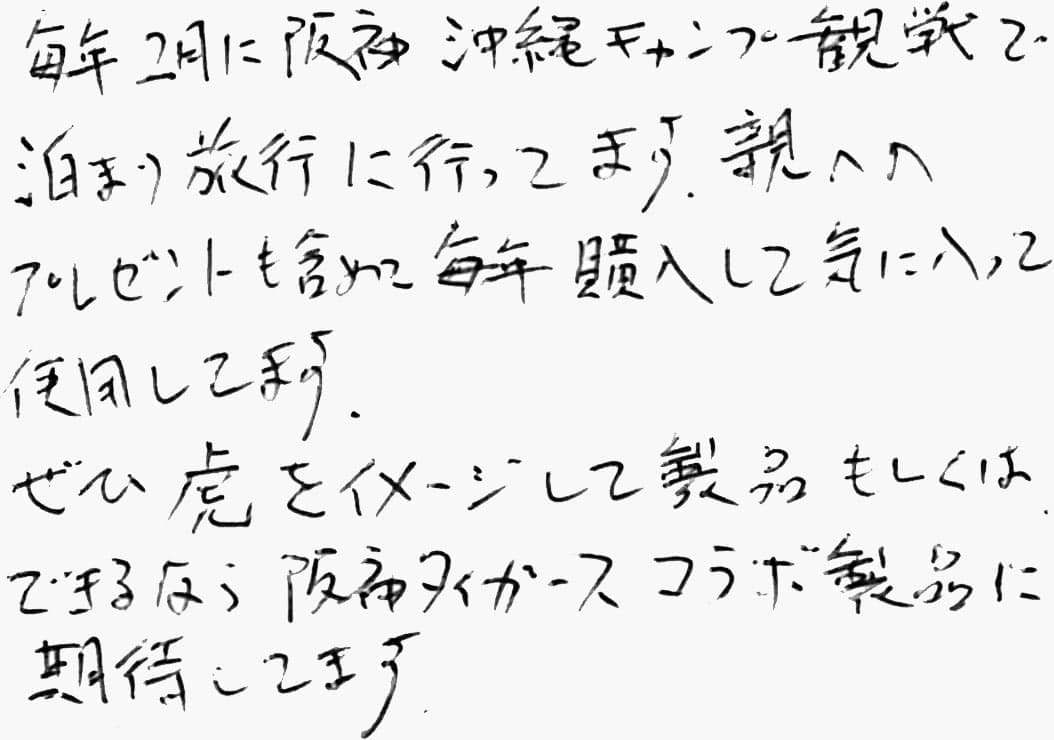 毎年2月に阪神 沖縄キャンプ観戦で
泊まり旅行に行ってます. 親への
プレゼントも含めて毎年購入して気に入って
使用してます.
ぜひ虎をイメージして製品もしくは.
できるなら阪神タイガースコラボ製品に
期待してます.